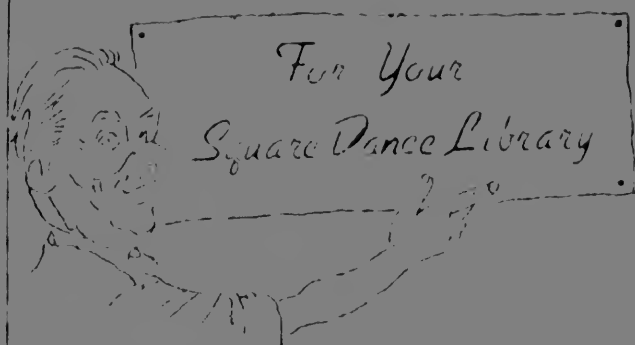 For Your
Square Dance Library